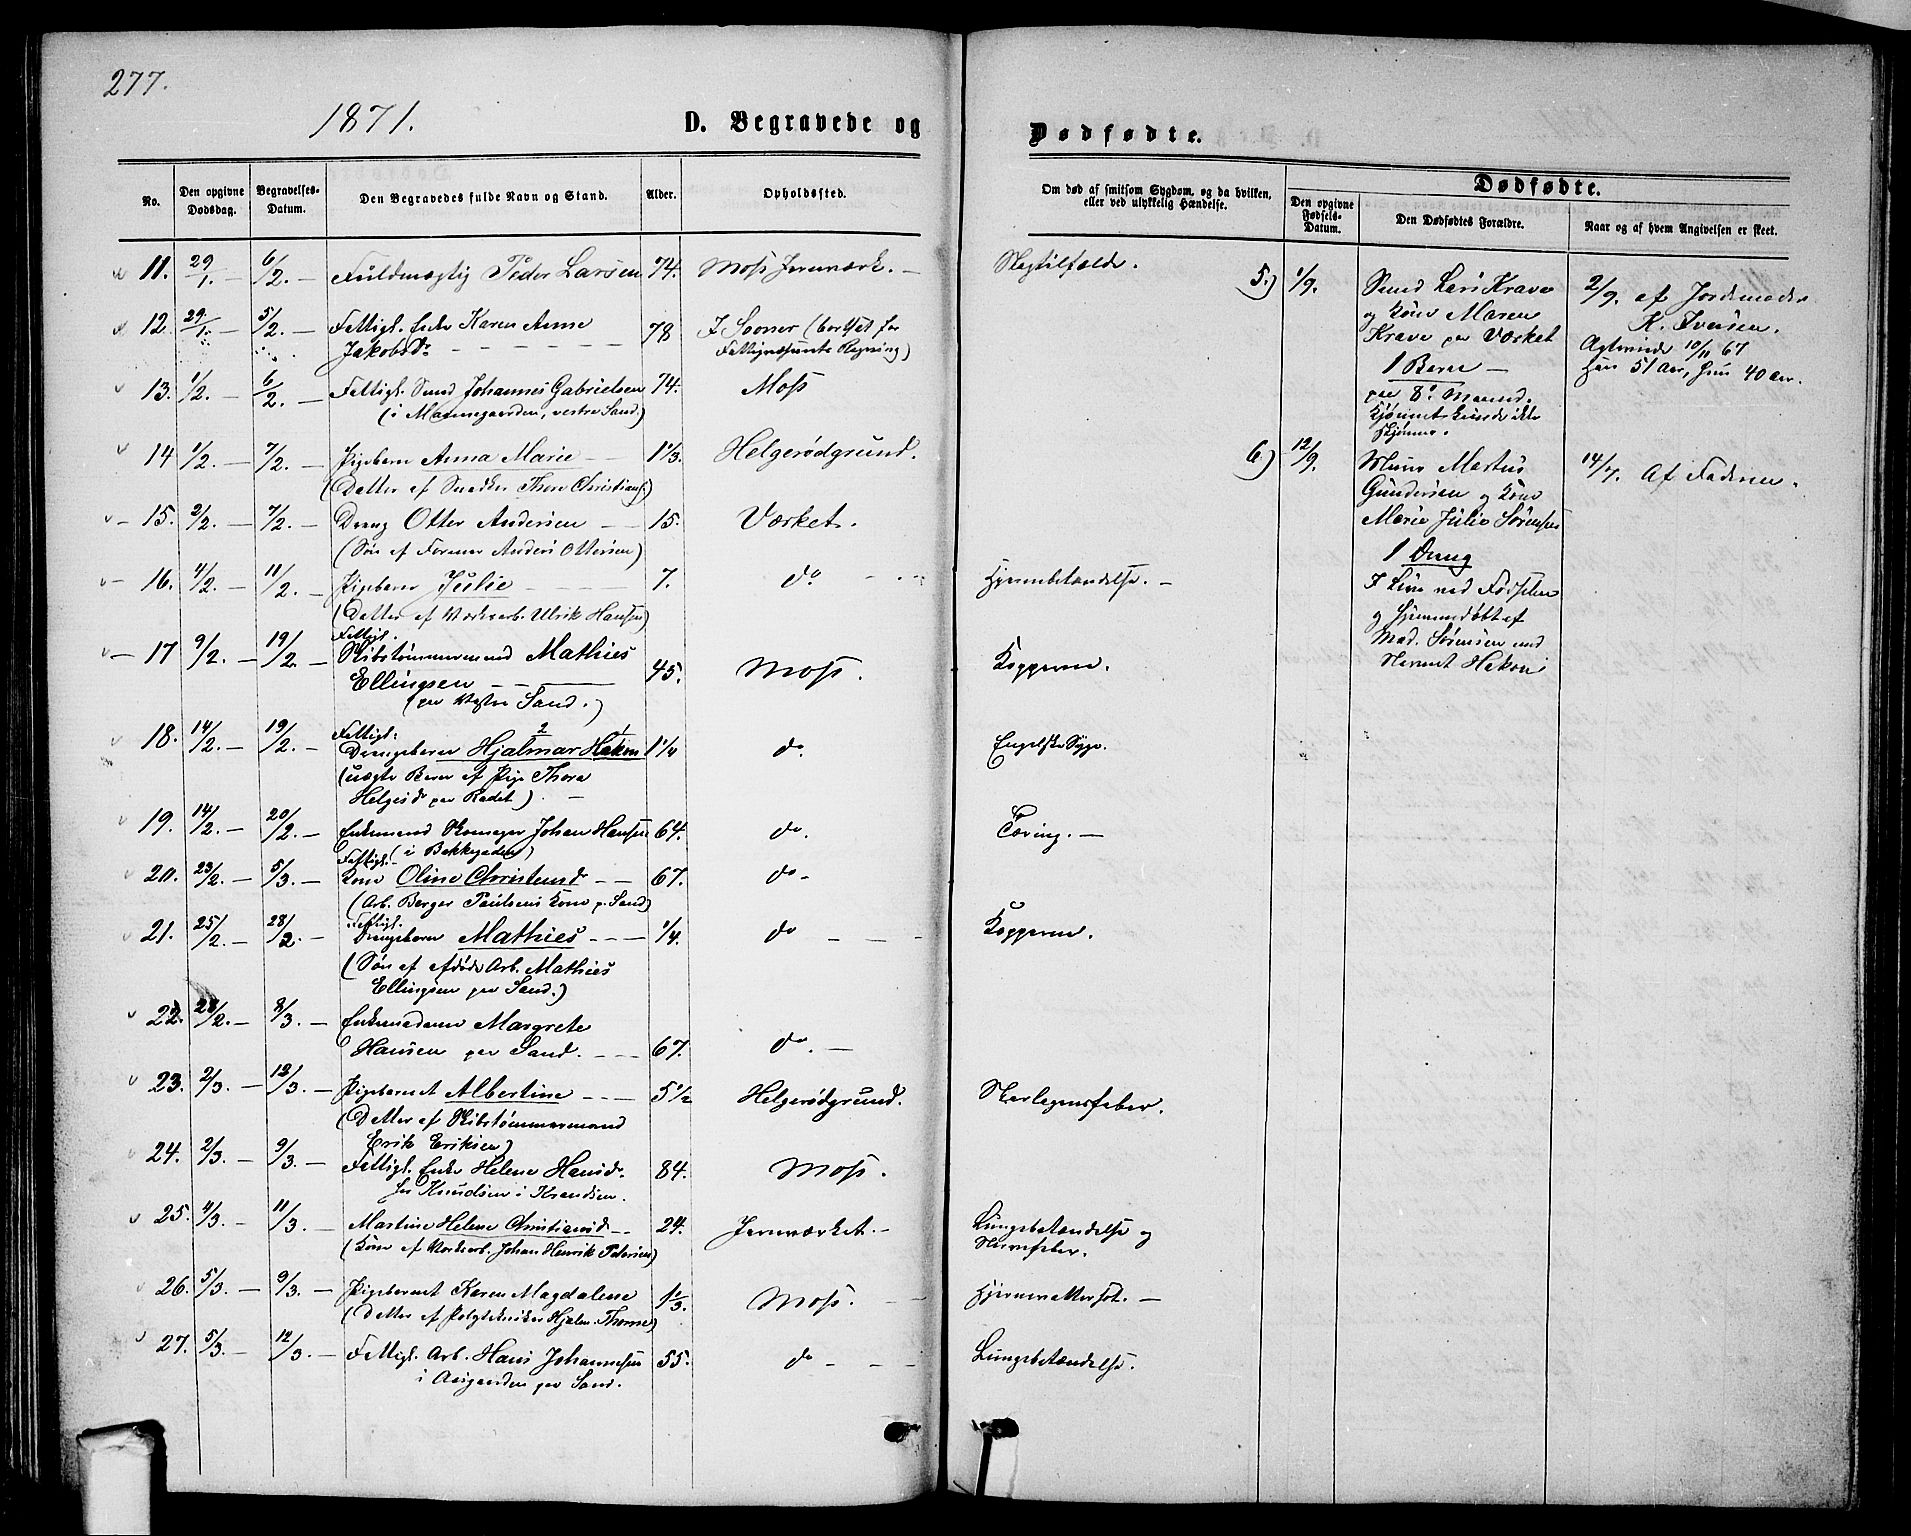 277.
1871.
D. Begravede og
Dødfødte.
No.
Den opgivne Dødsdag.
Begravelses-Datum.
Den Begravedes fulde Navn og Stand.
Alder.
Opholdssted.
Om død af smitsom Sygdom, og da hvilken, eller ved ulykkelig Hændelse.
Dødfødte.
Den opgivne Fødsels-Datum.
Den Dødfødtes Forældre.
Naar og af hvem Angivelsen er skeet.
11. 29/1. — 6/2. — Fuldmægtig Peder Larsen 74. Moss Jernværk. — Slagtilfælde.
12. 29/1. — 5/2. — Fattigl. Enke Karen Anne 78 I Sooner (bortsat for
Jakobsdr — Fattigvæsenets Regning)
13. 1/2. — 6/2. — Fattigl. Smed Johannes Gabrielsen 74. Moss
(i Mannegaarden, vestre Sand)
14 1/2. — 7/2. — Pigebarn Anna Marie — 1 1/3. Helgerødgrund.
(Datter af Snedker Thore Christians)
15. 2/2. — 7/2. — Dreng Otter Andersen — 15. Værket.
(Søn af Former Anders Ottersen)
16. 4/2. — 11/2. — Pigebarn Julie — 7. do — Hjernebetændelse. —
(Datter af Værksarb. Ulrik Hansen)
17 9/2. — 19/2. — Fattigl.
Skibstømmermand Mathies 45. Moss. Kopperne.
Ellingsen —
(paa Vestre Sand.)
18. 14/2. — 19/2. — Fattigl.
Drengebarn Hjalmar Hakon 1 1/4 do. Engelsk Syge.
(uægte Barn af Pige Thora
Helgesdr paa Rådet). —
19. 14/2. — 20/2. — Enkemand Skomager Johan Hansen 64. do. Tæring. —
(i Bakkegaden)
20. 23/2. — 5/3. — Fattigl.
Kone Oline Christensd — 67. do -
(Arb. Berger Paulsens Kone p. Sand)
21. 25/2. — 28/2. — Fattigl.
Drengebarn Mathies — 1/4. do — Kopperne.
(Søn af afdøde Arb. Mathies
Ellingsen paa Sand.)
22. 28/2. — 8/3. — Enkemadam Margrete
Hansen paa Sand. — 67. do. —
23. 2/3. — 12/3. — Pigebarnet Albertine — 5 1/2 Helgerødgrund. Skarlagensfeber.
(Datter af Skibstømmermand
Erik Eriksen)
24. 2/3. — 9/3. — Fattigl. Enke Helene Hansdr. 84. Moss.
25. 4/3. — 11/3. — Martine Helene Christiansd — 24. Jernværket. — Lungebetændelse og
(Kone af Værksarb. Johan Henrik Petersen) Nervefeber.
26. 5/3. — 9/3. — Pigebarnet Karen Magdalene 1 1/3. Moss. — Hjernevattersot. —
(Datter af Polytekniker Hjalm. Thorne)
27. 5/3. — 12/3. — Fattigl. Arb. Hans Johannesen 55. do — Lungebetændelse.
i Aasgaarden paa Sand.
5.) 1/9. Smed Lars Krave 2/9. af Jordemoder
og Kone Maren K. Iversen.
Krave paa Værket Ægteviede 10/11 67
1 Barn — Han 51 Aar, hun 40 Aar.
paa 8de Maaned.
Kjønnet kunde ikke
skjønnes.
6.) 12/9. Murer Martus 14/9. Af Faderen.
Gundersen og Kone
Marie Julie Sørensen
1 Dreng
I Live ved Fødselen
og hjemmedøbt af
Mad. Sørensen med
Navnet Hakon